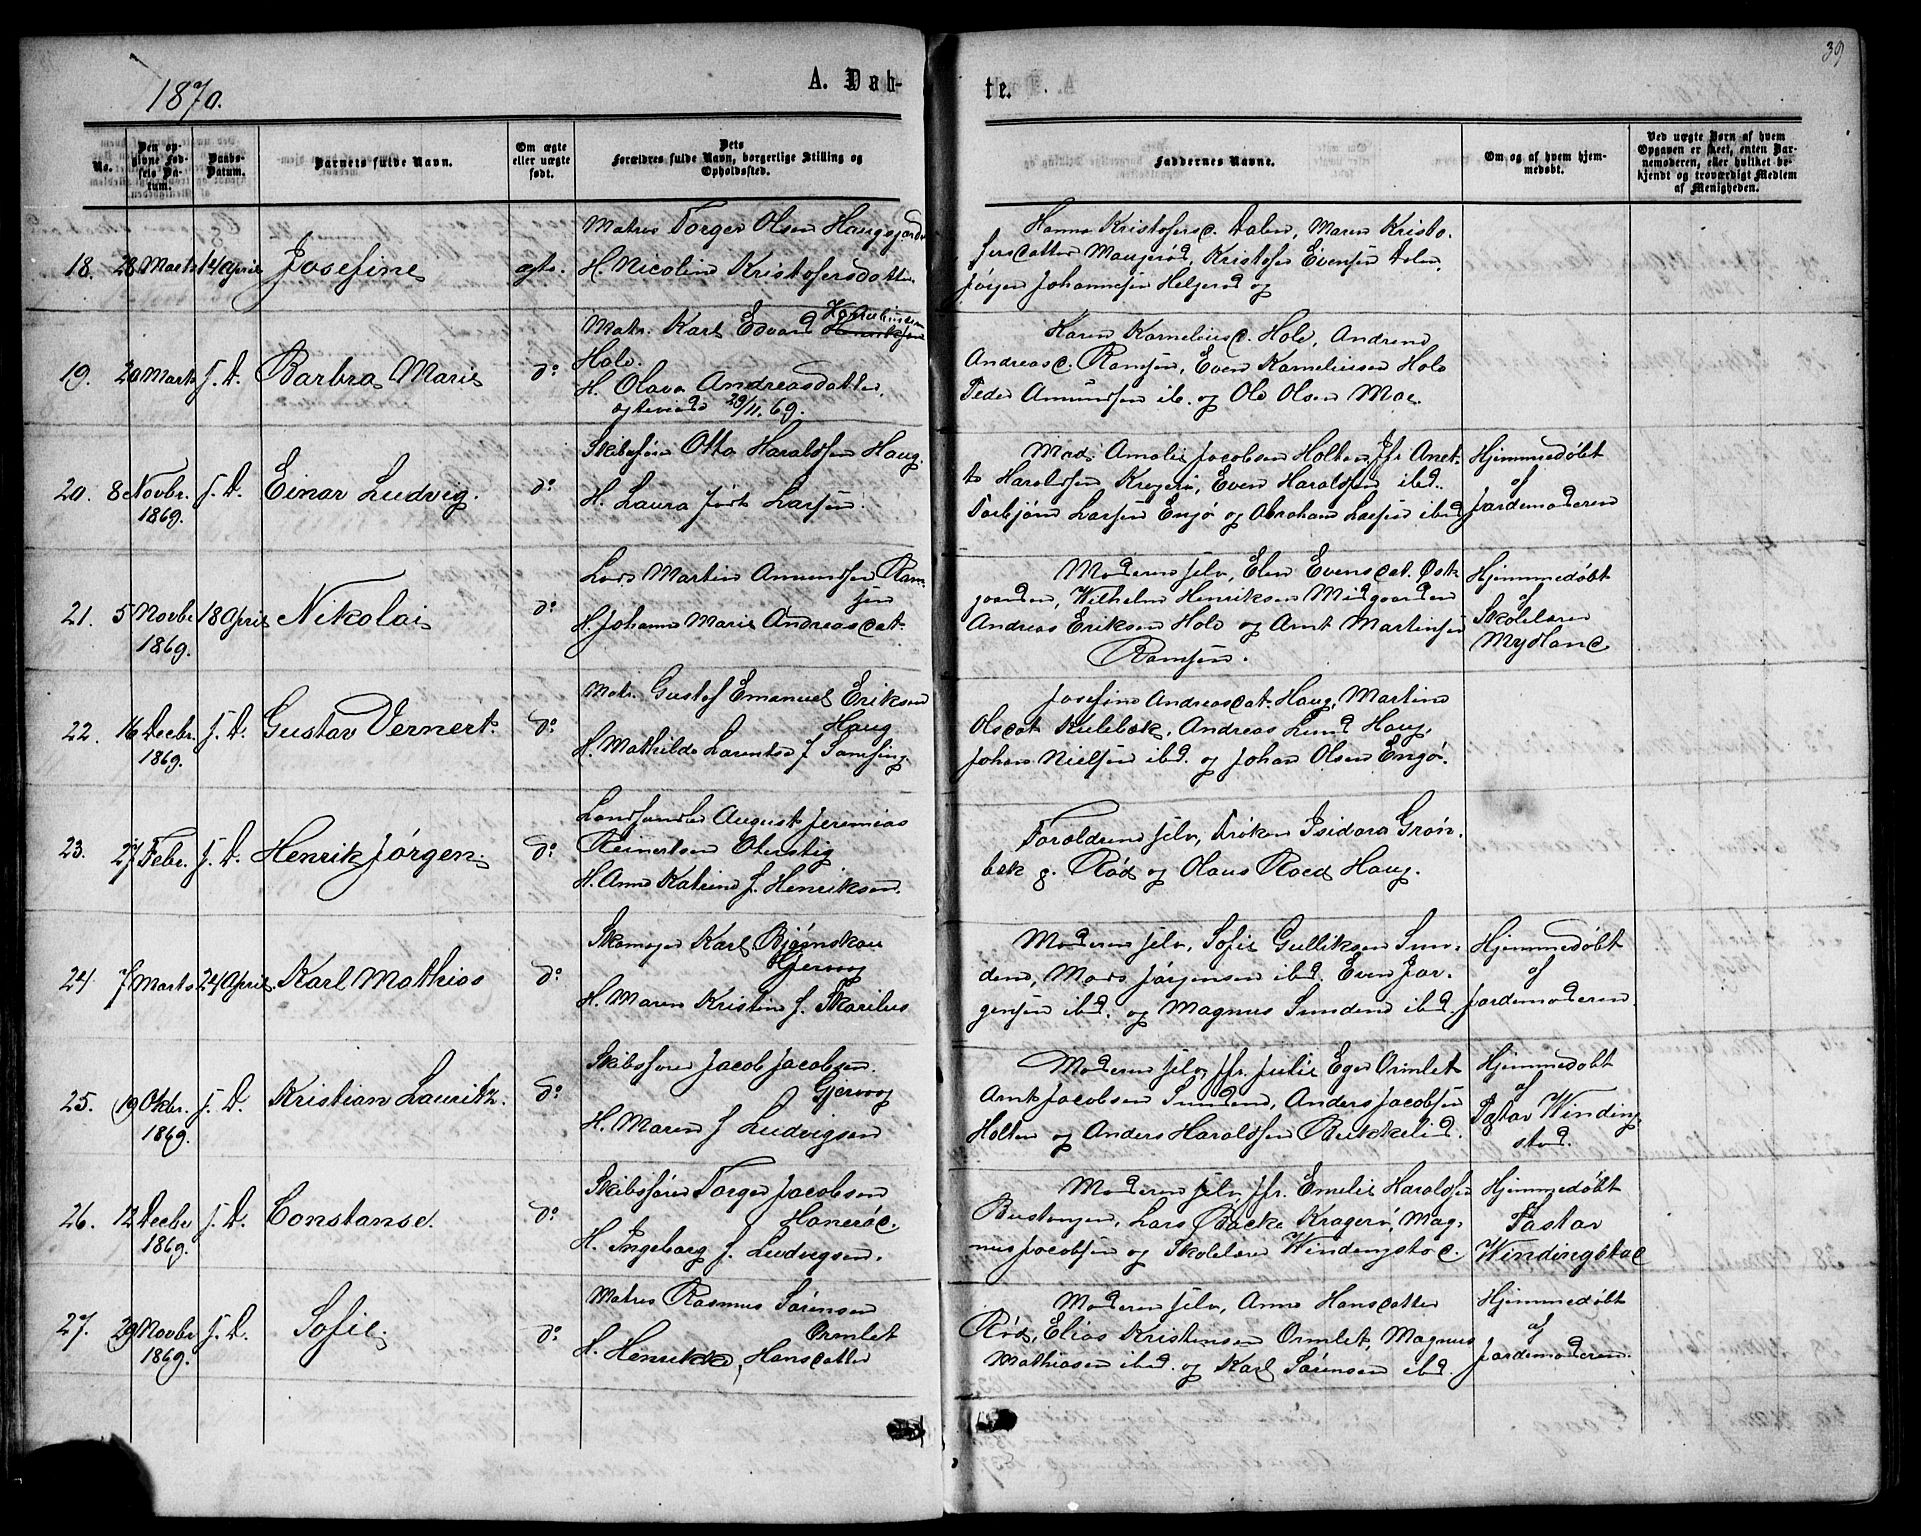 39
1870.
A. Døb-
te.
No.
Den op-
givne Fød-
sels Da-
tum.
Daabs-
Datum.
Barnets fulde Navn.
Om ægte
eller uægte
født.
Dets
Forældres fulde Navn, borgerlige Stilling og
Opholdssted.
Faddernes Navne.
Om og af hvem hjem-
medøbt.
Ved uægte Børn af hvem
Opgaven er skeet, enten Bar-
nemoderen, eller hvilket be-
kjendt og troværdigt Medlem
af Menigheden.
18. 28 Marts 14 April Josefine ægte.
Matros Torger Olsen
H. Nicolin Kristofersdatter
Hanna Kristofersd. Dalen, Maren Kristo-
fersdatter Maugerød, Kristofer Evensen Dalen,
Jørgen Johannesen Helgerød og
19. 20 Marts s. D. Barbra Marie do
Matr. Karl Edvard Korneliussen
Hole.
H. Olava Andreasdatter,
ægteviede 29/11. 69.
Karen Korneliusd. Hole, Andrene
Andreasd. Ramsøen, Even Korneliusen Hole
Peder Amundsen ib. og Ole Olsen Moe.
20. 8 Novbr. s. D. Einar Ludvig. do
1869.
Skibsfører Otto Haraldsen Haug.
H. Laura født Larsen.
Mad. Amalie Jacobsen Holten, Jfr Anet-
te Haraldsen Kragerø, Even Haraldsen ibd.
Torbjørn Larsen Engø og Abraham Larsen ibd
Hjemmedøbt
af
Jordemoderen
21. 5 Novbr 18 April Nikolai do
1869.
Lods Martin Amundsen Ram-
søen
H. Johanne Marie Andreasdat.
Moderen selv, Elen Evensdat. Øst-
gaarden, Wilhelm Henriksen Midgaarden
Andreas Eriksen Hole og Arnt Martinsen
Ramsøen.
Hjemmedøbt
af
Skolelærer
Mydland
22. 16 Decbr. s. D. Gustav Vernert. do
1869.
Matr. Gustaf Emanuel Eriksen
Haug
H. Mathilde Larentse f. Samsing.
Josefine Andreasdat. Haug, Martine
Olsdat Kulebæk, Andreas Lund Haug,
Johan Nielsen ibd. og Johan Olsen Engø.
23. 27 Febr. s. D. Henrik Jørgen. do
Landhandler August Jeremias
Reinertsen
H. Anne Katrine f. Henriksen.
Forældrene selv, Frøken Isidora Grøn-
bæk g. Rød og Olaus Roed Haug.
24. 7 Marts 24 April. Karl Mathias do
Skomager Karl Bjørnskau
Gjernog
H. Maren Kristine f. Skarilus
Moderen selv, Sofie Gulliksen Sun-
dene, Mads Jørgensen ibd. Even Jør-
gensen ibd. og Magnus Sundene ibd.
Hjemmedøbt
af
Jordemoderen.
25. 19 Oktbr. s. D. Kristian Lauritz. do
1869.
Skibsfører Jacob Jacobsen.
Gjernog
H. Maren f Ludvigsen
Moderen selv, Jfr. Julie Eger Ormlet
Arnt Jacobsen Sundene, Anders Jacobsen
Holten og Anders Haraldsen Bukkelid.
Hjemmedøbt
af
Pastor Winding-
stad.
26. 12 Decbr s. D. Constanse. do
1869.
Skibsfører Torger Jacobsen
H. Ingeborg f. Ludvigsen.
Moderen selv, Jfr. Emelie Haraldsen
Lars Backe Kragerø, Mag-
nus Jacobsen og Skolelærer Windingstad.
Hjemmedøbt
Pastor
Windingstad
27. 29 Novbr s. D. Sofie. do
1869.
Matros Rasmus Sørensen
Ormlet
H. Henrikke Hansdatter
Moderen selv, Anne Hansdatter
Rød, Elias Kristensen Ormlet, Magnus
Mathiasen ibd. og Karl Sørensen ibd.
Hjemmedøbt
af
Jordemoderen.